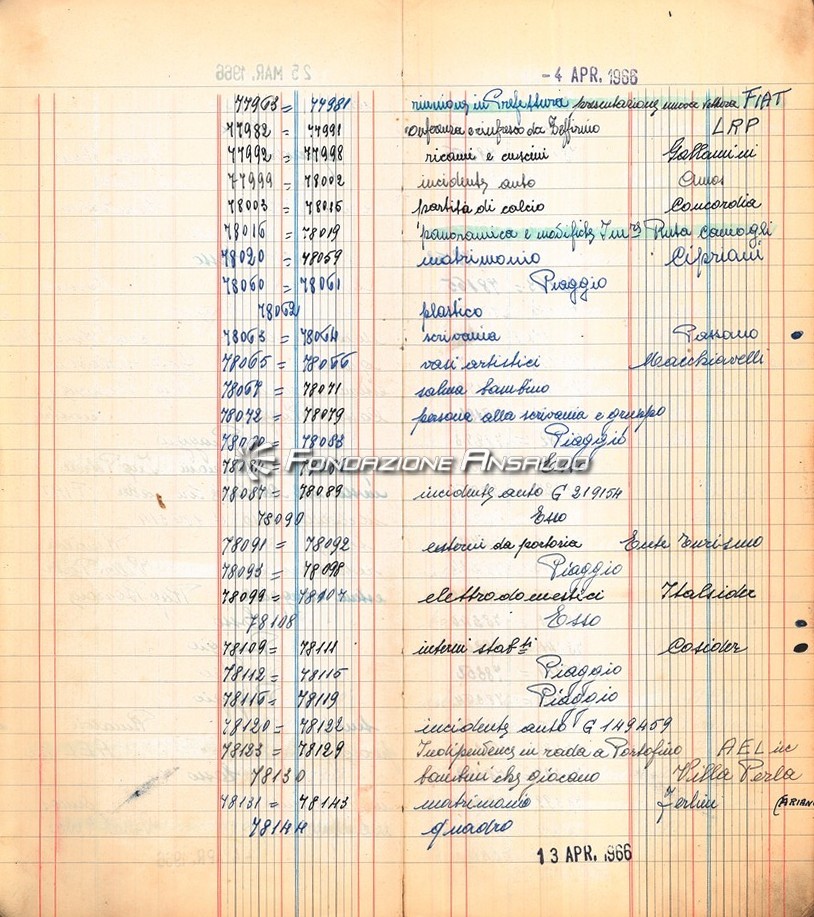 - 4 APR. 1966
77963 = 77981 riunione in Prefettura presentazione nuova vettura FIAT
77982 = 77991 e rinfresco da Zeffirino LRP
77992 = 77998 ricami e cuscini Gallamini
77999 = 78002 incidente auto Amos
78003 = 78015 partita di calcio Concordia
78016 = 78019 panoramica e modifiche Ruta Camogli
78020 = 78059 matrimonio Cipriani
78060 = 78061 Piaggio
78062 plastico
78063 = 78064 scrivania Passano
78065 = 78066 vasi artistici Macchiavelli
78067 = 78071 salma bambino
78072 = 78079 persona alla scrivania e gruppo
78080 = 78083 Piaggio
FONDAZIONE ANSALDO
78087 = 78089 incidente auto G 219154
78090 Esso
78091 = 78092 esterni da portoria Ente Turismo
78093 = 78098 Piaggio
78099 = 78107 elettrodomestici Italsider
78108 Esso
78109 = 78111 interni stab.ti Cosider
78112 = 78115 Piaggio
78116 = 78119 Piaggio
78120 = 78122 incidente auto G 149459
78123 = 78129 Indipendence in rada a Portofino AEL inc
78130 bambini che giocano Villa Perla
78131 = 78143 matrimonio Zerbini (ARIAN
78144 quadro
13 APR. 1966